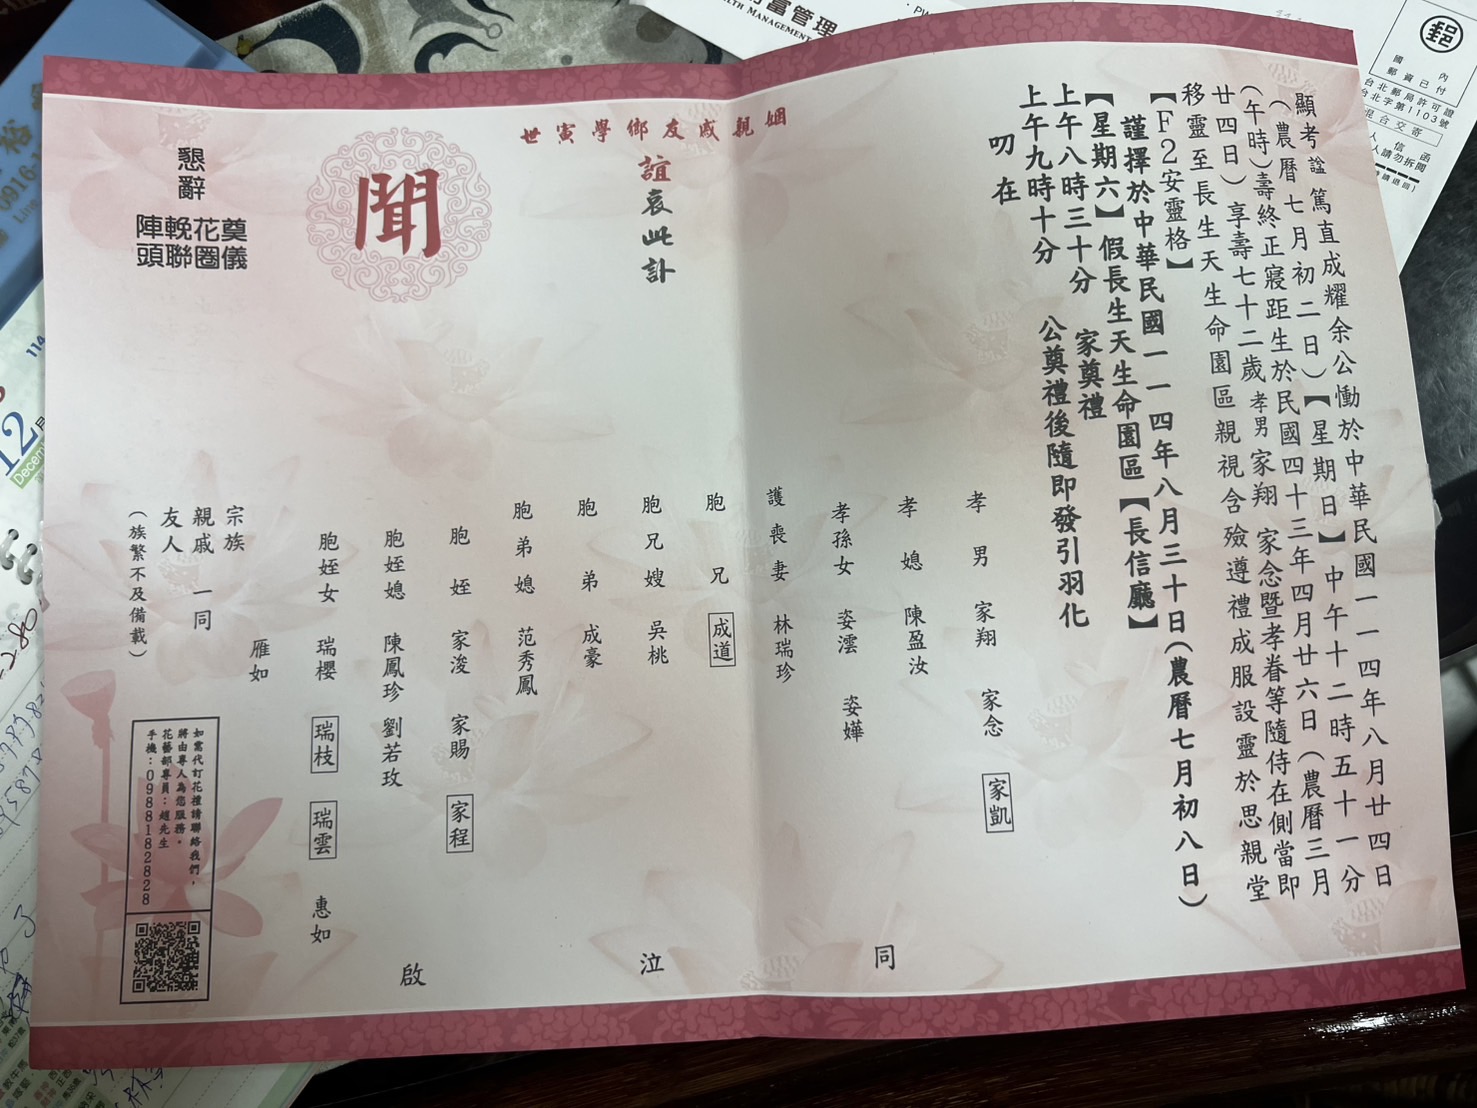 顯考諡篤直成耀余公慟於中華民國一一四年八月廿四日
(農曆七月初二日)【星期日】中午十二時五十一分
(午時)壽終正寢距生於民國四十三年四月廿六日(農曆三月
廿四日)享壽七十二歲孝男家翔 家念暨孝眷等隨侍在側當即
移靈至長生天生命園區親視含殮遵禮成服設靈於思親堂
【F2安靈格】
謹擇於中華民國一一四年八月三十日(農曆七月初八日)
【星期六】假長生天生命園區【長信廳】
上午八時三十分 家奠禮
上午九時十分 公奠禮後隨即發引羽化
叨在
姻親戚友鄉學寅世
誼哀此訃
聞
懇辭
奠儀
花圈
輓聯
陣頭
孝男 家翔 家念 家凱
孝媳 陳盈汝
孝孫女 姿澐 姿嬅
護喪妻 林瑞珍
胞兄 成道
胞兄嫂 吳桃
胞弟 成豪
胞弟媳 范秀鳳
胞姪 家浚 家賜 家程
胞姪媳 陳鳳珍 劉若玫
胞姪女 瑞櫻 瑞枝 瑞雲 惠如
雁如
宗族
親戚 一同
友人
(族繁不及備載)
同
泣
啟
如需代訂花禮請聯絡我們，
將由專人為您服務。
花藝部專員：趙先生
手機：0988182828
財富管理
WEALTH MANAGEMENT
郵
國內
郵資已付
台北郵局許可證
台北字第1103號
0916
114
12月
Decem